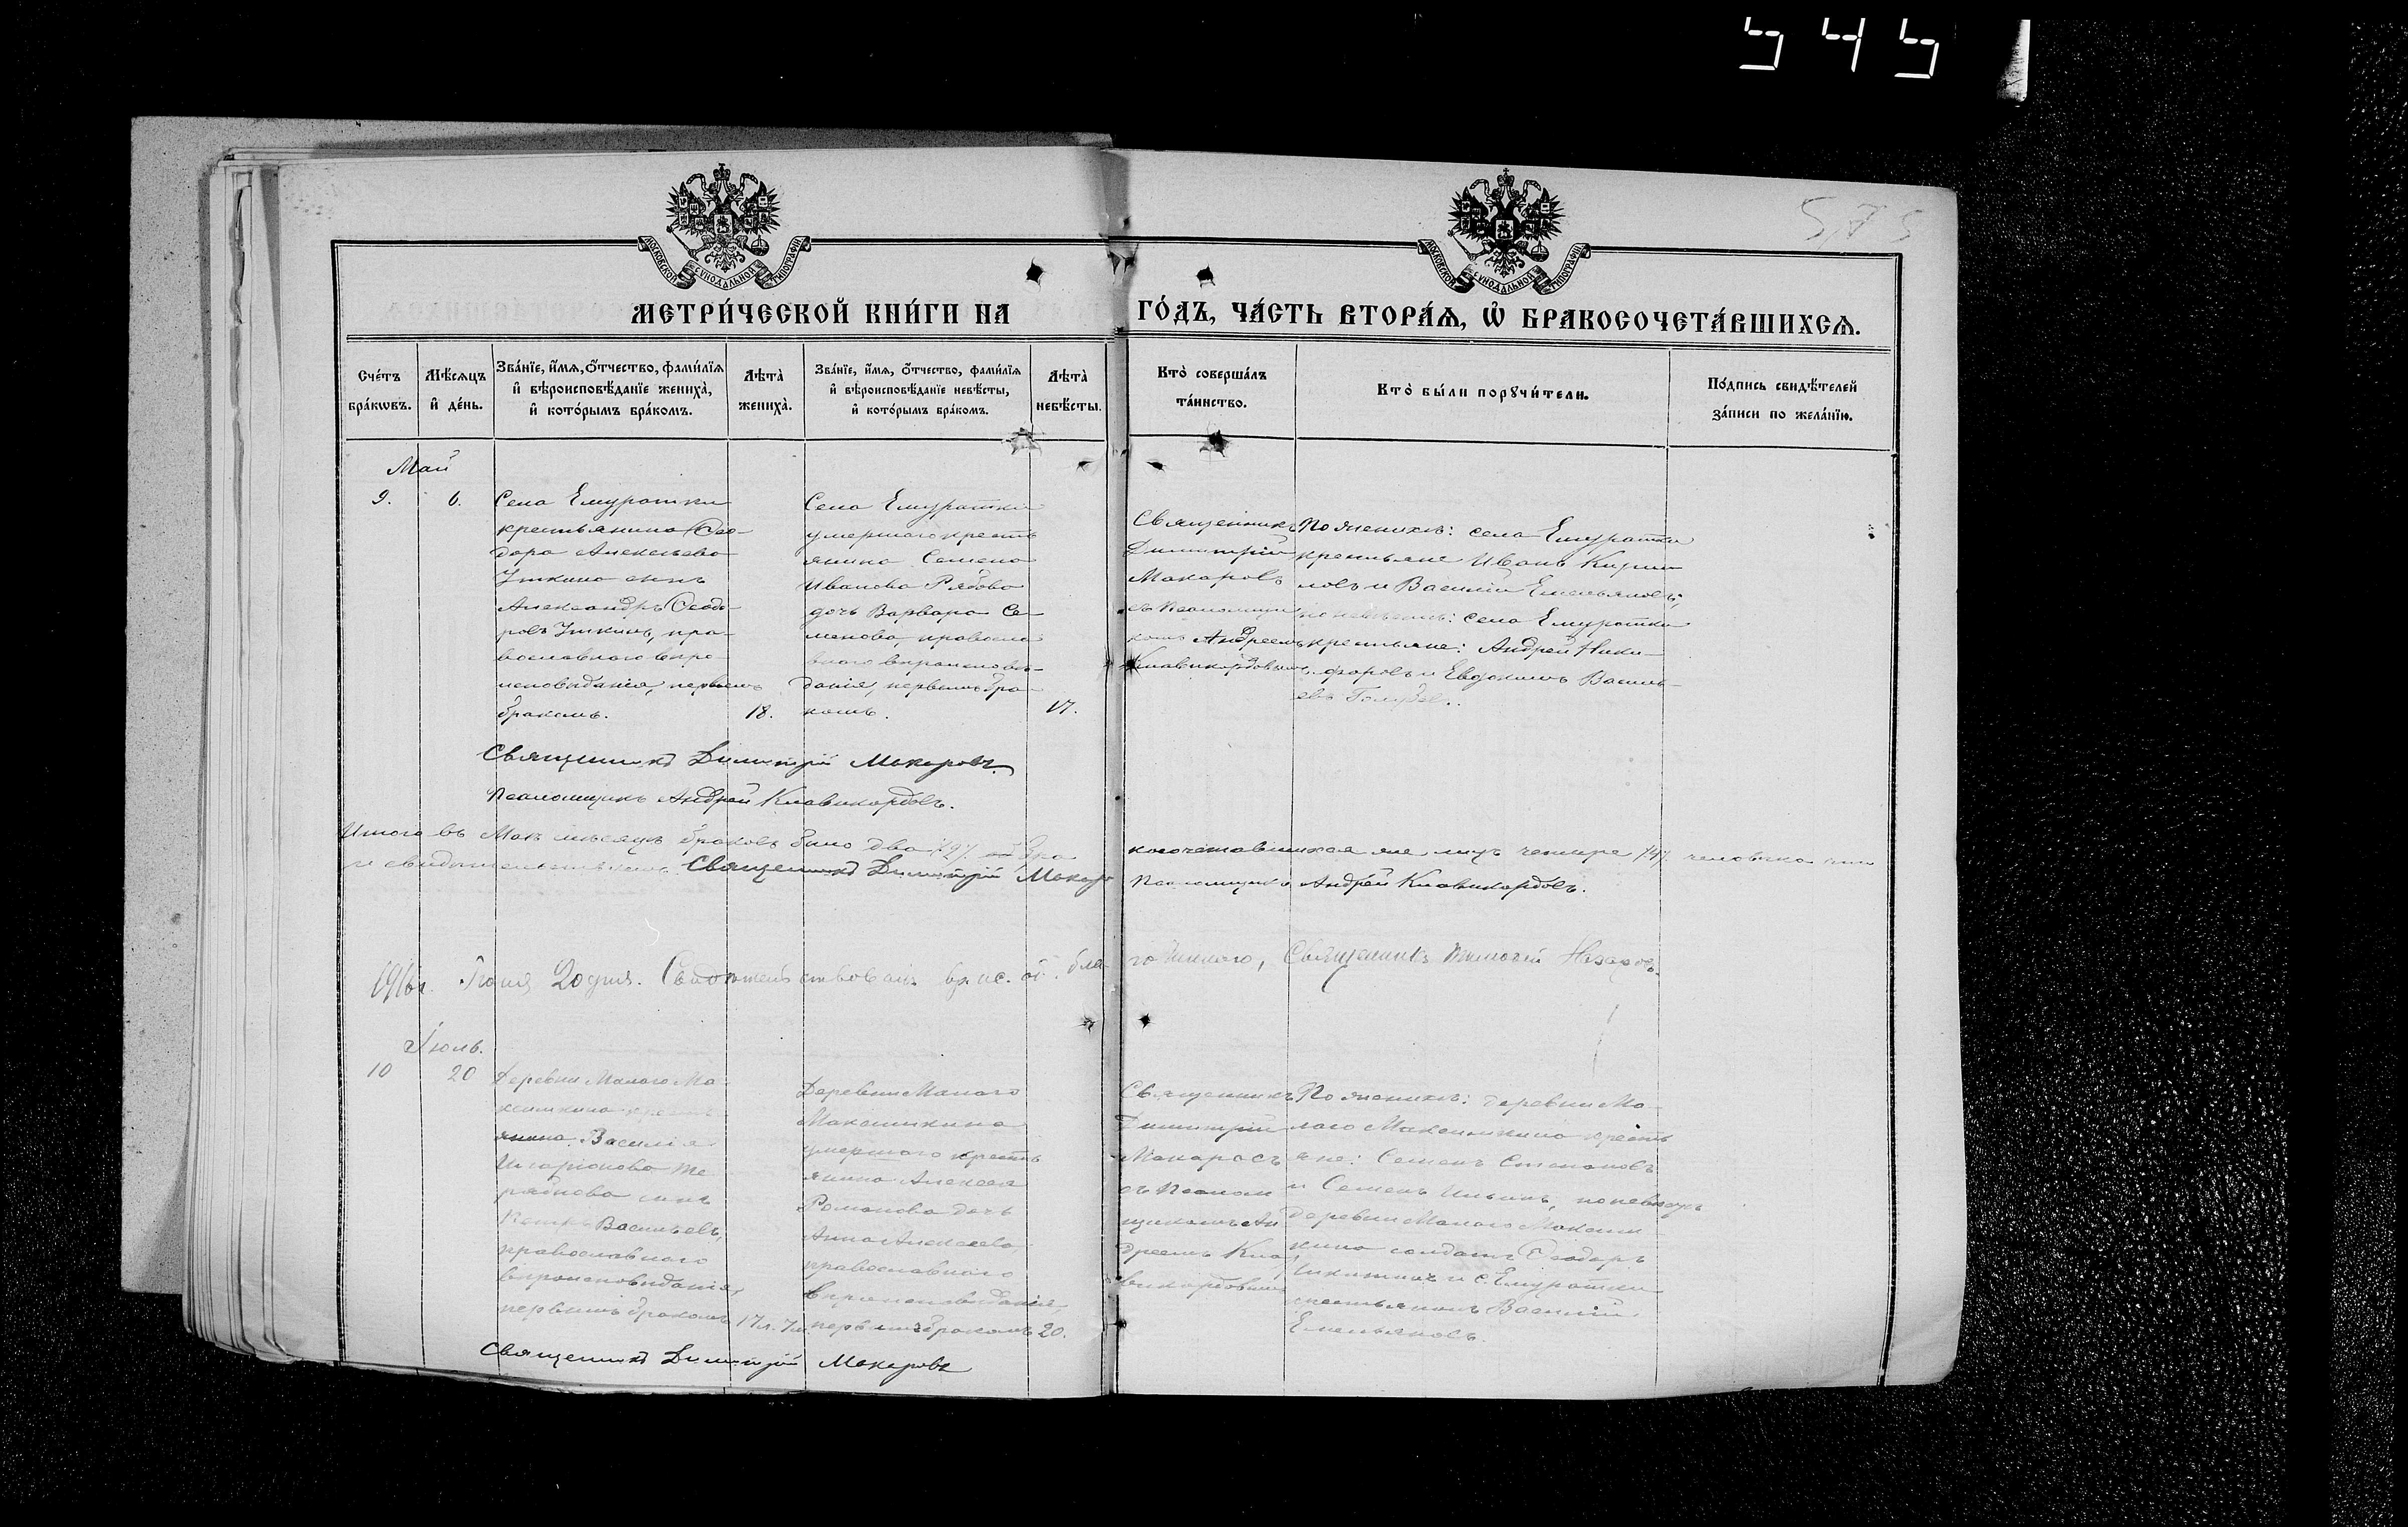 545
575
МОСКОВСКОЙ СѴНОДАЛЬНОЙ ТИПОГРАФІИ
МОСКОВСКОЙ СѴНОДАЛЬНОЙ ТИПОГРАФІИ
МЕТРИ́ЧЕСКОЙ КНИ́ГИ НА ГО́ДЪ, ЧА́СТЬ ВТОРА́Ѧ, Ѡ҆ БРАКОСОЧЕТА́ВШИХСѦ.
Сче́тъ
бра́кѡвъ.
Мѣ́сѧцъ
и҆ де́нь.
Зва́нїе, и҆́мѧ, ѻ҆́тчество, фами́лїѧ
и҆ вѣроисповѣ́данїе жениха̀,
и҆ кото́рымъ бра́комъ.
Лѣта̀
жениха̀.
Зва́нїе, и҆́мѧ, ѻ҆́тчество, фами́лїѧ
и҆ вѣроисповѣ́данїе невѣ́сты,
и҆ кото́рымъ бра́комъ.
Лѣта̀
невѣ́сты.
Кто̀ соверша́лъ
та́инство.
Кто̀ бы́ли порꙋчи́тели.
По́дпись свидѣ́телей
за́писи по жела́нїю.
Май
9.
6.
Села Емуратки
крестьянина Ѳео-
дора Алексѣева
Уткина сынъ
Александръ Ѳеодо-
ровъ Уткинъ, пра-
вославнаго вѣро-
исповѣданія, первымъ
бракомъ.
18.
Села Емуратки
умершаго кресть
янина Семена
Иванова Рябова
дочь Варвара Се-
менова, правосла
внаго вѣроисповѣ-
данія, первымъ бра-
комъ.
17.
Священникъ
Димитрій
Макаровъ
съ псаломщи
комъ Андреемъ
Клавикордовымъ
По женихѣ: села Емуратки
крестьяне Иванъ Кирил
ловъ и Василій Емельяновъ;
по невѣстѣ: села Емуратки
крестьяне: Андрей Ники-
форовъ и Евдокимъ Василь-
евъ
Священникъ Димитрій Макаровъ.
Псаломщикъ Андрей Клавикордовъ.
Итого въ Маѣ мѣсяцѣ браковъ было два /2/. Бра
косочетавшихся же лицъ четыре /4/. человѣка
свидѣтельствуемъ. Священникъ Димитрій Макаро
Псаломщикъ Андрей Клавикордовъ.
1916 г. Іюня 20 дня. Свидѣтельствовалъ
Священникъ
Іюль.
10
20
Деревни Малаго Ма-
ксимкина кресть
янина Василія
Иларіонова Те
рябкова сынъ
Петръ Васильевъ,
православнаго
вѣроисповѣданія,
первымъ бракомъ
17 л. 7 м.
Деревни Малаго
Максимкина
умершаго кресть
янина Алексея
Романова дочь
Анна Алексеева,
православнаго
вѣроисповѣданія,
первымъ бракомъ
20.
Священникъ
Димитрій
Макаровъ
съ псалом
щикомъ Ан
дреемъ Кла
викордовымъ
По женихѣ: деревни Ма-
лаго Максимкина кресть
яне: Семенъ Степановъ
и Семенъ Ильинъ; по невѣстѣ
деревни Малаго Максим
кина солдатъ Ѳеодоръ
и с. Емуратки
крестьянинъ Василій
Емельяновъ.
Священникъ Димитрій Макаровъ